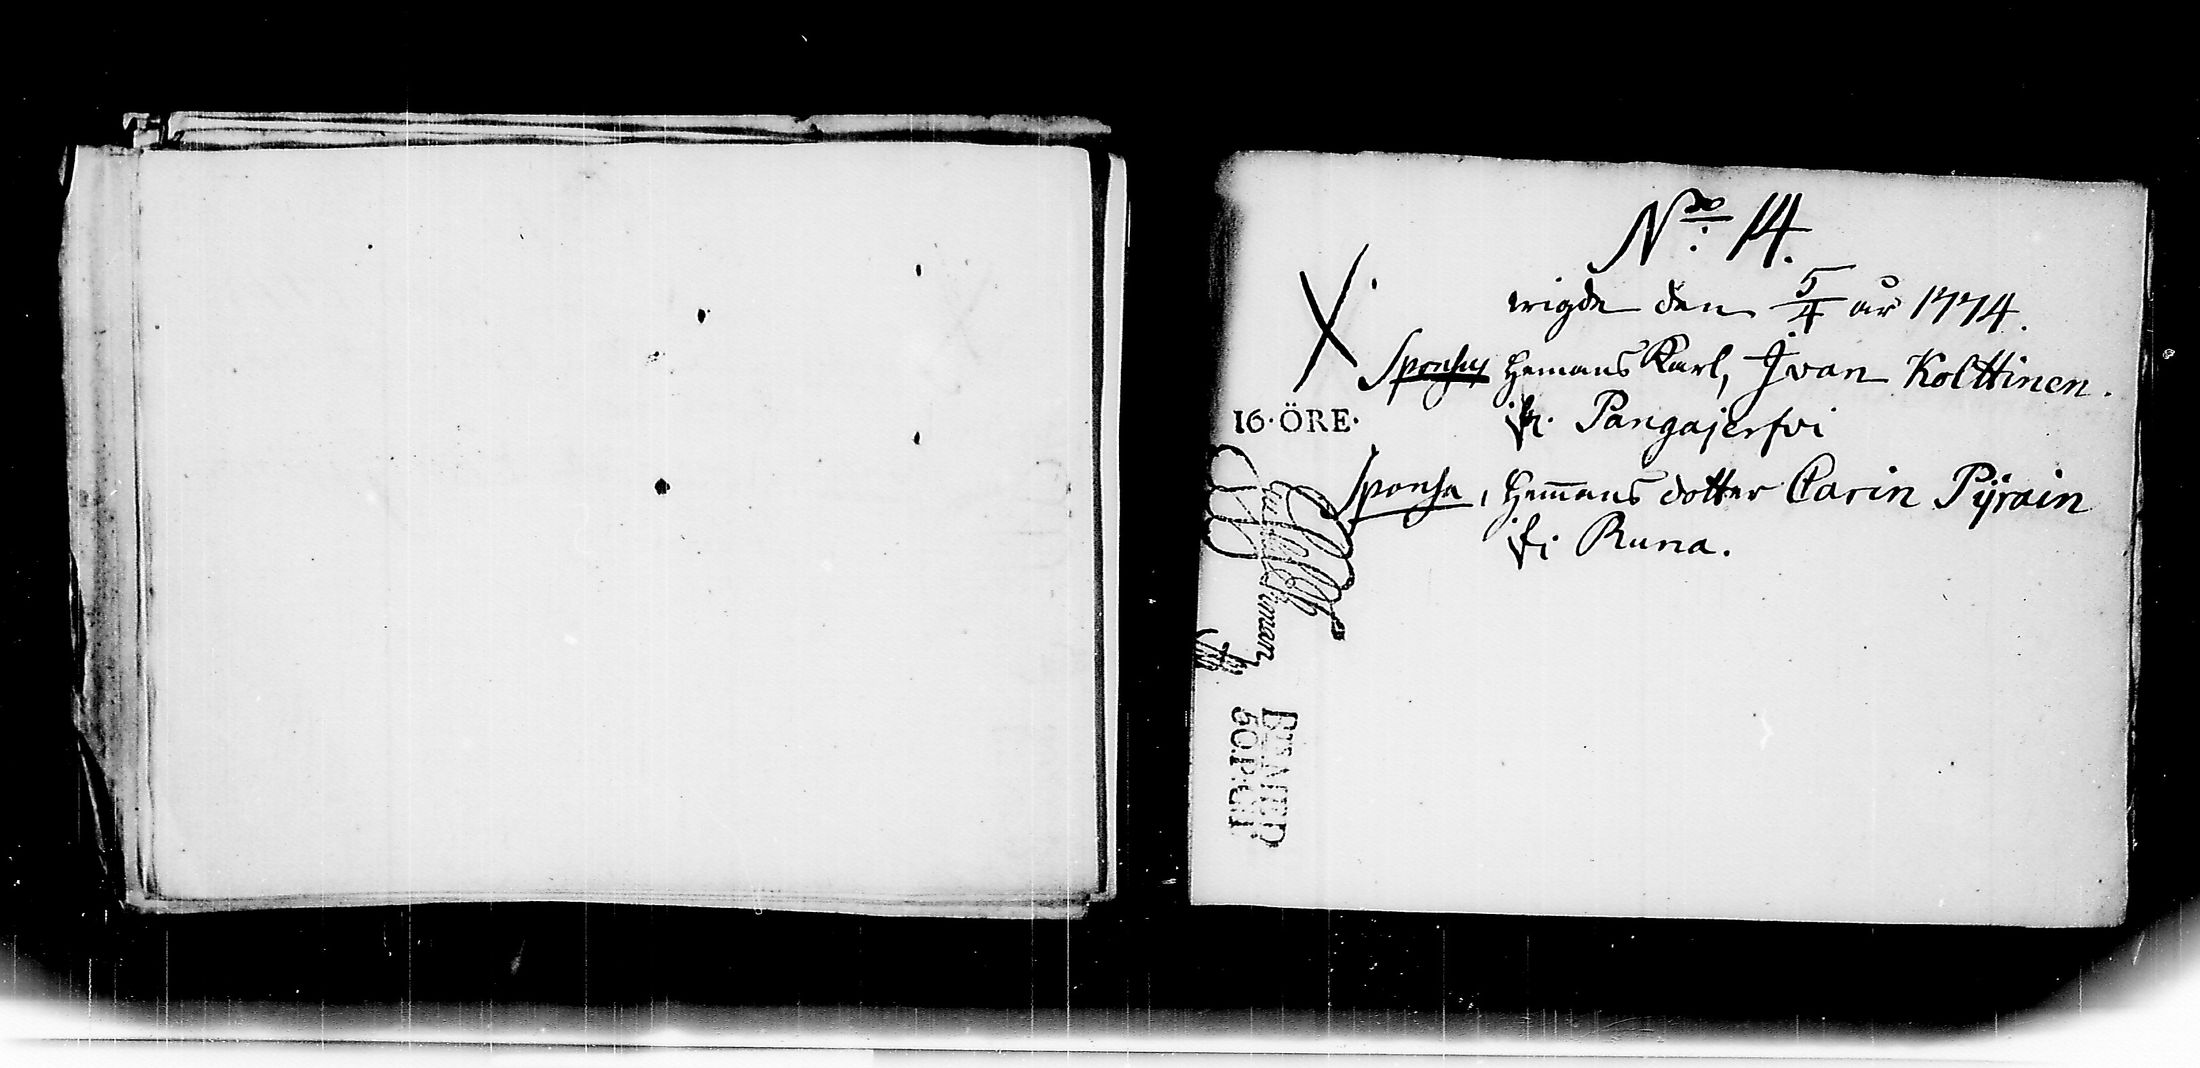 No: 14.
wigde den 5/4 år 1774.
Sponsus Hemans Karl, Ivan Kolttinen.
fr. Pangajerfvi
16·ÖRE·
Sponsa, Hem̅ans dotter Carin Pÿräin
fr Runa.